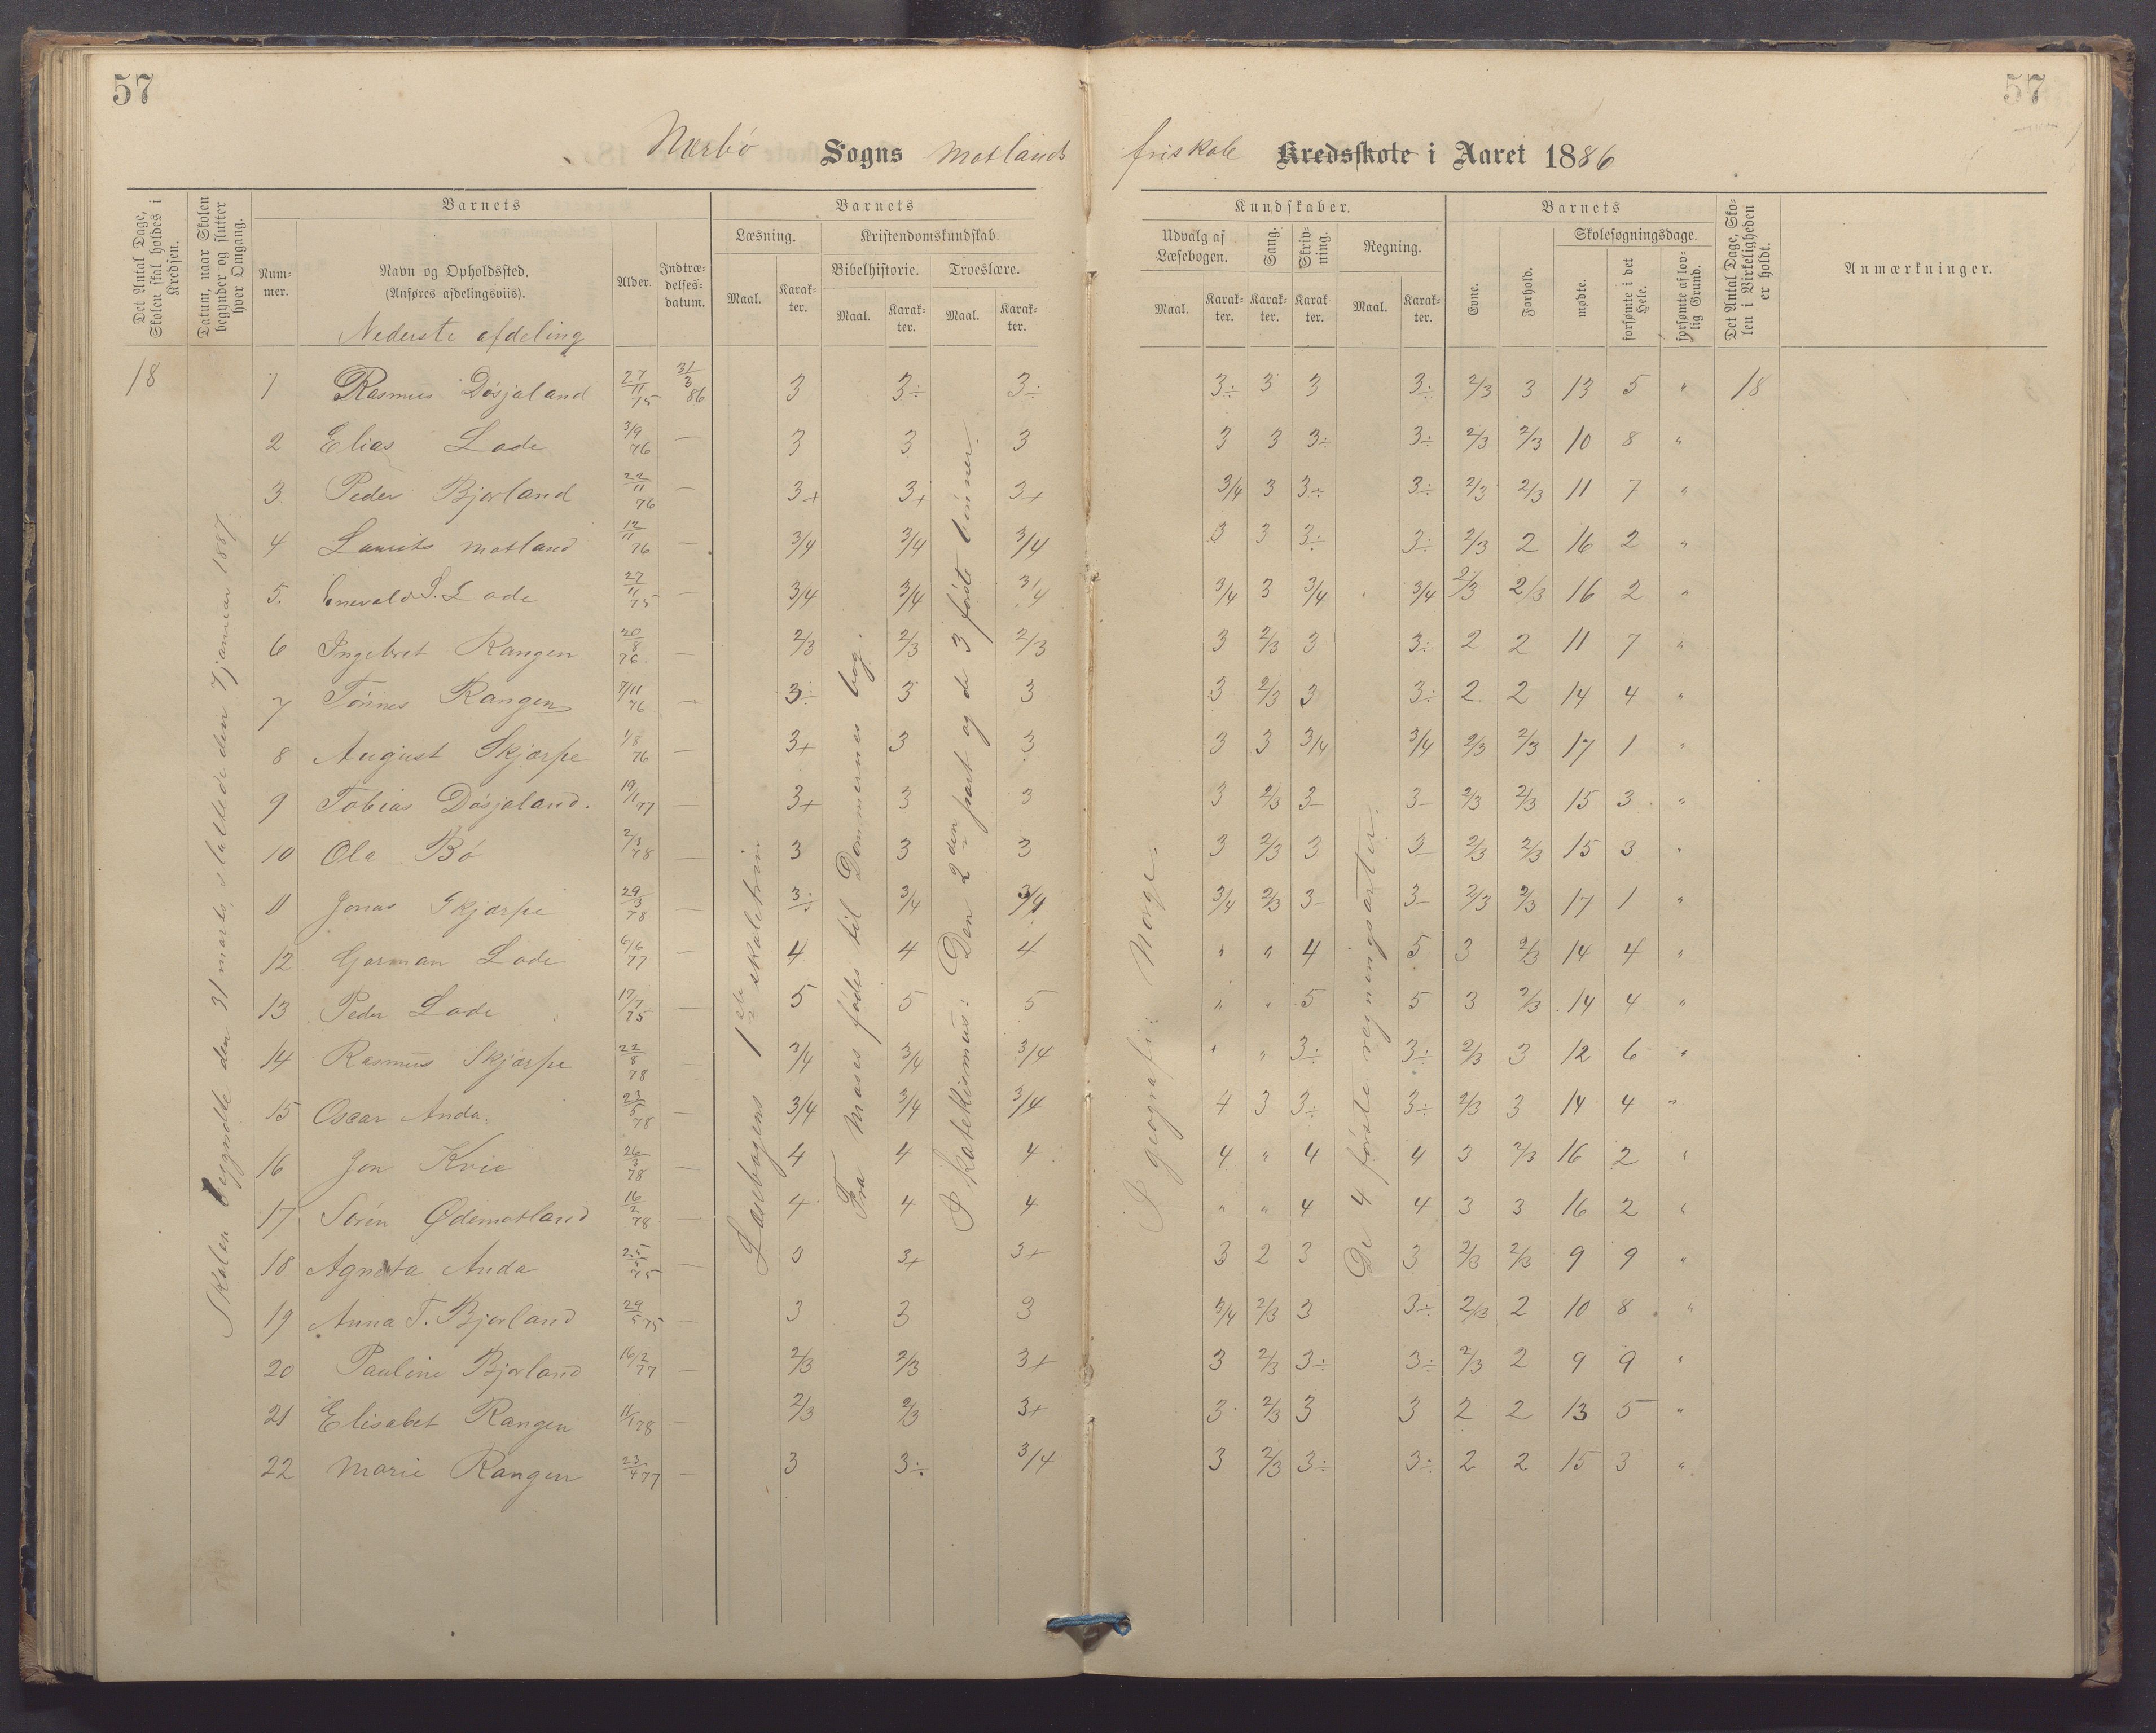 57
57
Nærbø Sogns Motlands friskole Kredsskole i Aaret 1886
Det Antal Dage, Skolen skal holdes i Kredsen.
Datum, naar Skolen begynder og slutter hver Omgang.
Barnets
Num-
mer.
Navn og Opholdssted.
(Anføres afdelingsviis).
Nederste afdeling
Alder.
Indtræ-
delses-
datum.
Barnets
Læsning.
Maal.
Karak-
ter.
Kristendomskundskab.
Bibelhistorie.
Maal.
Karak-
ter.
Troeslære.
Maal.
Karak-
ter.
Kundskaber.
Udvalg af
Læsebogen.
Maal.
Karak-
ter.
Sang.
Karak-
ter.
Skriv-
ning.
Karak
ter.
Regning.
Maal.
Karak-
ter.
Barnets
Evne.
Forhold.
Skolesøgningsdage.
mødte.
forsømte i det Hele.
forsømte af lov-
lig Grund.
Det Antal Dage, Sko-
len i Virkeligheden
er holdt.
Anmærkninger.
Skolen begyndte den 31 marts, sluttede den 7 januar 1887.
Læsebogens 1ste skoletrin
Fra Moses fødes til Dommernes bog.
I katekismus: Den 2den part og de 3 første bønner.
I geografi: Norge.
De 4 første regningsarter.
18 1 Rasmus Døsjaland 27/11 75 31/3 86 3 3÷ 3÷ 3÷ 3 3 3÷ 2/3 3 13 5 " 18
2 Elias Lode 3/9 76 — 3 3 3 3 3 3÷ 3÷ 2/3 2/3 10 8 "
3 Peder Bjorland 22/11 76 — 3+ 3+ 3+ 3/4 3 3÷ 3÷ 2/3 2/3 11 7 "
4 Laurits Motland 12/11 76 — 3/4 3/4 3/4 3 3 3÷ 3÷ 2/3 2 16 2 "
5. Enevald S. Lode 27/11 75 — 3/4 3/4 3/4 3/4 3 3/4 3/4 2/3 2/3 16 2 "
6 Ingebret Rangen 20/8 76. — 2/3 2/3 2/3 3 2/3 3 3÷ 2 2 11 7 "
7 Tønnes Rangen 7/11 76 — 3÷ 3 3 3 2/3 3 3÷ 2 2 14 4 "
8 August Skjærpe 1/8 76 — 3+ 3 3 3 3 3/4 3/4 2/3 2/3 17 1 "
9 Tobias Døsjaland. 19/1 77 — 3+ 3 3 3 2/3 3- 3- 2/3 2/3 15 3 "
10 Ola Bø 2/3 78 — 3 3 3 3 2/3 3 3- 2/3 2/3 15 3 "
11 Jonas Skjærpe 29/3 78 — 3÷ 3/4 3/4 3/4 2/3 3- 3- 2/3 2/3 17 1 "
12 Gorman Lode 6/6 77 — 4 4 4 " " 4 5 3 2/3 14 4 "
13 Peder Lode 17/7 75 — 5 5 5 " " 5 5 3 2/3 14 4 "
14 Rasmus Skjærpe 22/8 78 — 3/4 3/4 3/4 " " 3÷ 3÷ 2/3 3 12 6 "
15 Oscar Anda. 23/5 78 — 3/4 3/4 3/4 4 3 3÷ 3÷ 2/3 3 14 4 "
16 Jon Kvie 26/3 78 — 4 4 4 4 " 4 4 3 2/3 16 2 "
17 Sørén Ødemotland 16/2 78 — 4 4 4 " " 4 4 3 3 16 2 "
18 Agneta Anda 75 — 3 3+ 3+ 3 2 3 3 2/3 2/3 9 9 "
19 Anna T. Bjorland 29/5 75 — 3 3 3 3/4 2/3 3 3÷ 2/3 2 10 8 "
20 Pauline Bjorland 16/2 77 — 2/3 2/3 3+ 3 2/3 3÷ 3÷ 2/3 2 9 9 "
21 Elisabet Rangen 11/1 78 — 2/3 2/3 3+ 3 2/3 3 3 2 2 13 5 "
22 Marie Rangen 23/4 77 — 3 3÷ 3/4 3 2/3 3÷ 3÷ 2 2 15 3 "